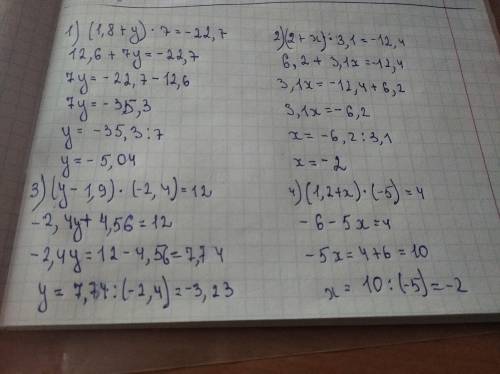 1) (1,8+y) · 7 = -22,7
12,6 + 7y = -22,7
7y = -22,7 - 12,6
7y = -35,3
y = -35,3 : 7
y = -5,04
2) (2+x) · 3,1 = -12,4
6,2 + 3,1x = -12,4
3,1x = -12,4 + 6,2
3,1x = -6,2
x = -6,2 : 3,1
x = -2
3) (y - 1,9) · (-2,4) = 12
-2,4y + 4,56 = 12
-2,4y = 12 - 4,56 = 7,74
y = 7,74 : (-2,4) = -3,23
4) (1,2+x) · (-5) = 4
-6 - 5x = 4
-5x = 4 + 6 = 10
x = 10 : (-5) = -2